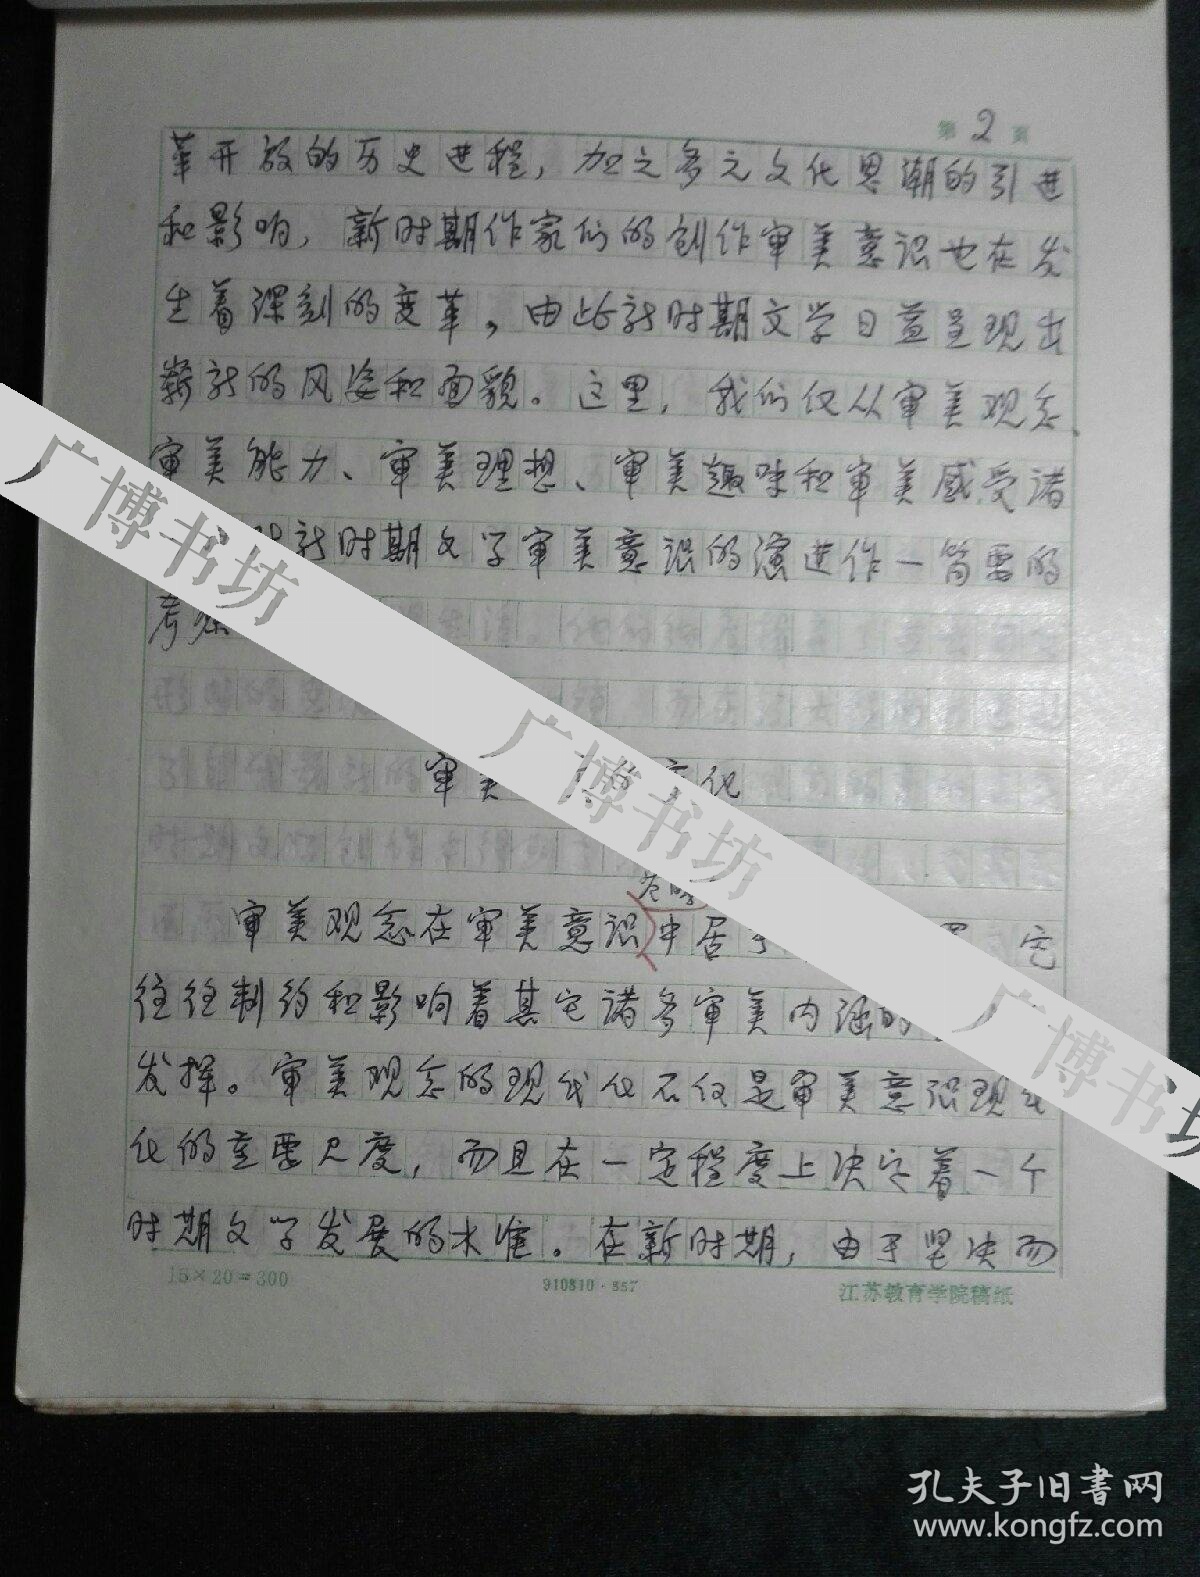 第2页
革开放的历史进程，加之多元文化思潮的引进
和影响，新时期作家们的创作审美意识也在发
生着深刻的变革，由此新时期文学日益呈现出
崭新的风姿和面貌。这里，我们仅从审美观念、
审美能力、审美理想、审美趣味和审美感受诸
对新时期文学审美意识的演进作一简要的
考察
审美 变化
范畴
审美观念在审美意识中居于 它
往往制约和影响着其它诸多审美内涵的
发挥。审美观念的现代化不仅是审美意识现代
化的重要尺度，而且在一定程度上决定着一个
时期文学发展的水准。在新时期，由于坚决而
15×20=300
910810·857
江苏教育学院稿纸
广博书坊
广博书坊
广博书坊
孔夫子旧书网
www.kongfz.com